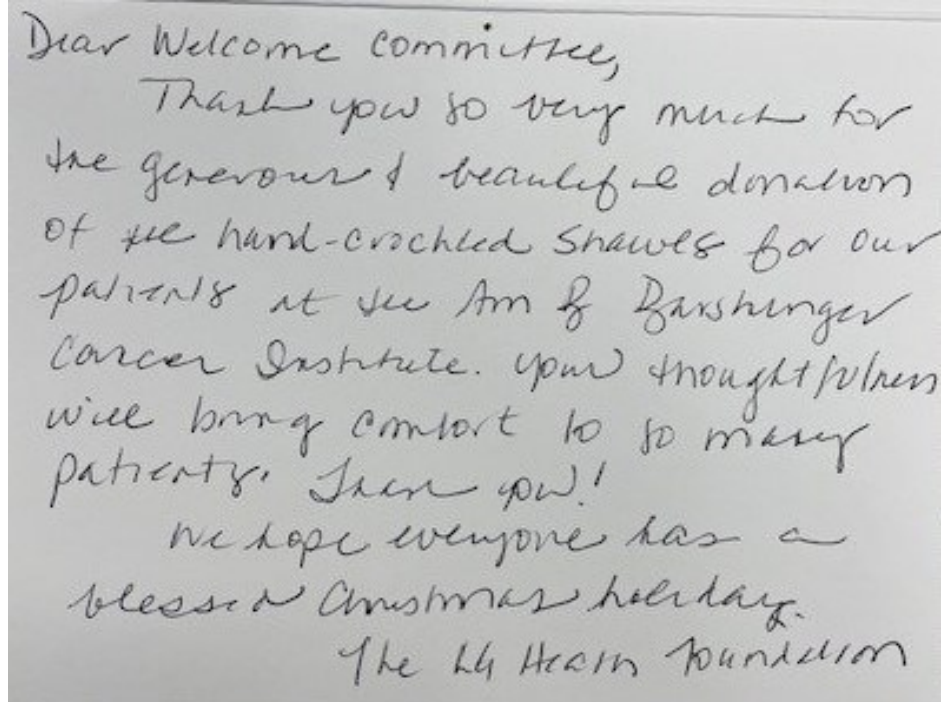 Dear Welcome Committee,
Thank you so very much for
the generous & beautiful donation
of the hand-crocheted shawls for our
patients at the Ann B Barshinger
Cancer Institute. Your thoughtfulness
will bring comfort to so many
patients. Thank you!
We hope everyone has a
blessed Christmas holiday.
The LG Health Foundation